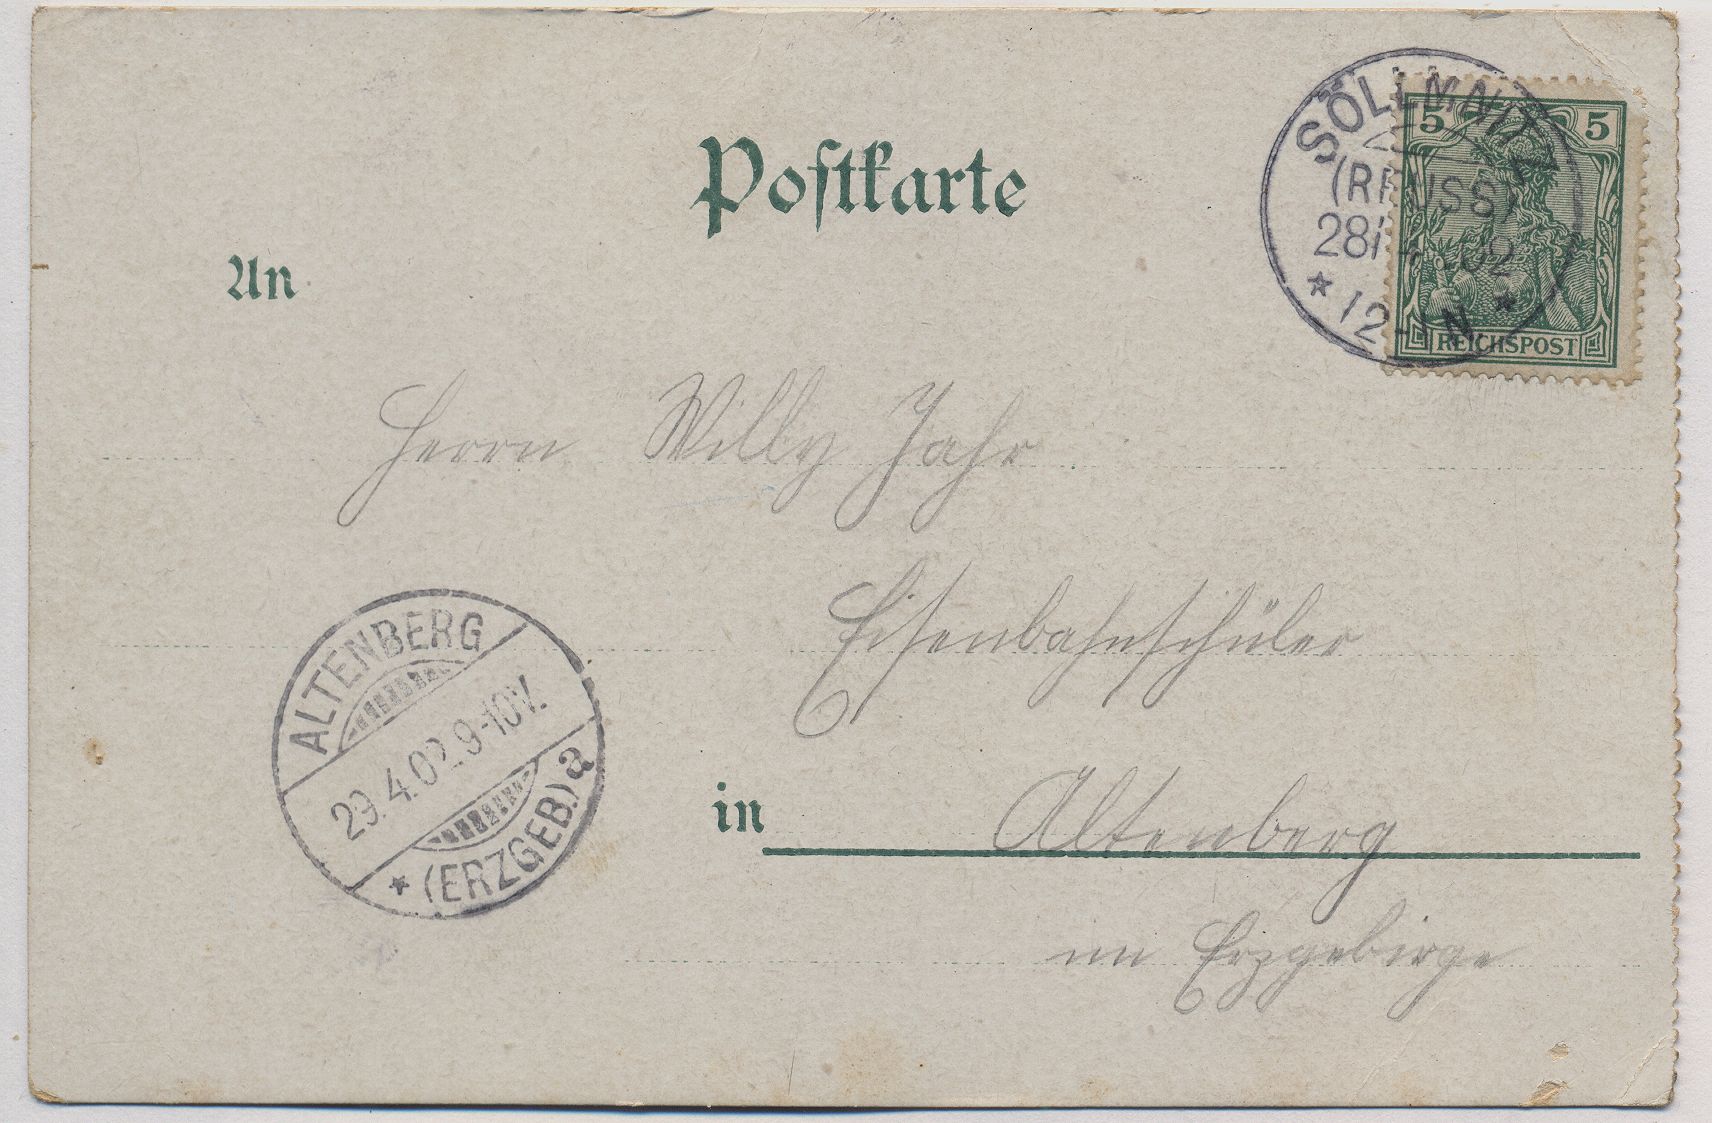 Postkarte
SÖLLMNITZ
(REUSS)
28/4 02
* 12-1N. *
5 5
REICHSPOST
An
Herrn Willy Jahr
Eisenbahnschüler
in Altenberg
im Erzgebirge
ALTENBERG
29.4.02.9-10V.
* (ERZGEB.) a